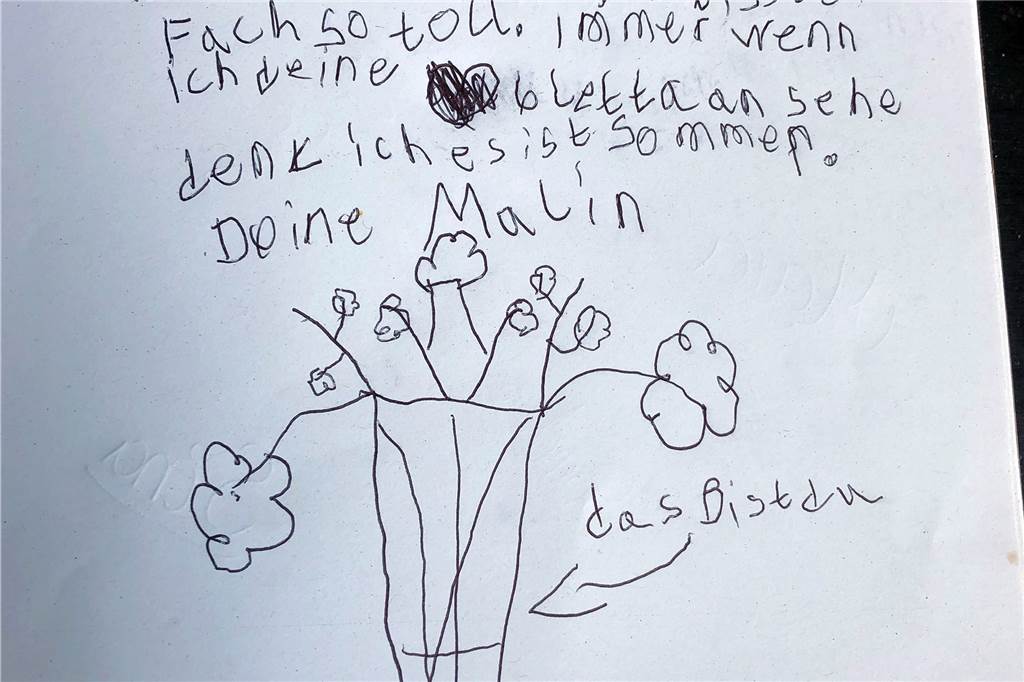 Fach so toll. immer wenn
ich deine bletta an sehe
denk ich es ist Sommer.
Deine Malin
das Bist du